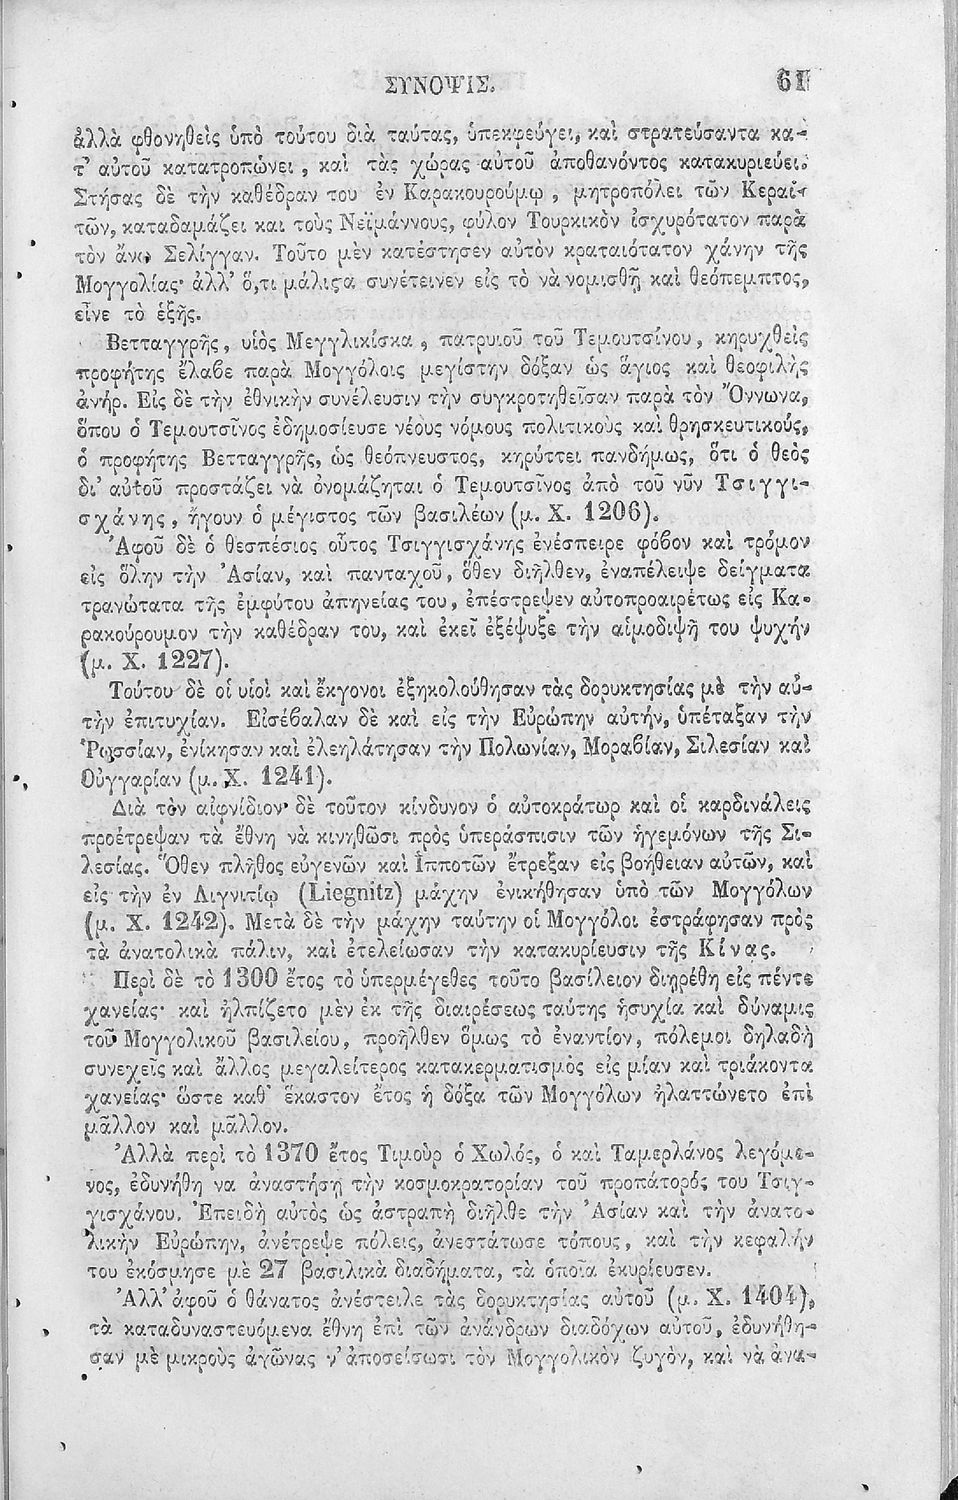 ΣΥΝΟΨΙΣ. 61
ἀλλὰ φθονηθεὶς ὑπὸ τούτου διὰ ταύτας, ὑπεκφεύγει, καὶ στρατεύσαντα κα-
τ' αὐτοῦ κατατροπώνει, καὶ τὰς χώρας αὐτοῦ ἀποθανόντος κατακυριεύει.
Στήσας δὲ τὴν καθέδραν του ἐν Καρακουρούμῳ, μητροπόλει τῶν Κεραϊ-
τῶν, καταδαμάζει και τοὺς Νεϊμάννους, φῦλον Τουρκικὸν ἰσχυρότατον παρὰ
τὸν ἄνω Σελίγγαν. Τοῦτο μὲν κατέστησεν αὐτὸν κραταιότατον χάνην τῆς
Μογγολίας· ἀλλ' ὅ,τι μάλιϛα συνέτεινεν εἰς τὸ νὰ νομισθῇ καὶ θεόπεμπτος,
εἶνε τὸ ἑξῆς.
Βετταγγρῆς, υἱὸς Μεγγλικίσκα, πατρυιοῦ τοῦ Τεμουτσίνου, κηρυχθεὶς
προφήτης ἔλαβε παρὰ Μογγόλοις μεγίστην δόξαν ὡς ἅγιος καὶ θεοφιλὴς
ἀνήρ. Εἰς δὲ τὴν ἐθνικὴν συνέλευσιν τὴν συγκροτηθεῖσαν παρὰ τὸν Ὄννωνα,
ὅπου ὁ Τεμουτσῖνος ἐδημοσίευσε νέους νόμους πολιτικοὺς καὶ θρησκευτικούς,
ὁ προφήτης Βετταγγρῆς, ὡς θεόπνευστος, κηρύττει πανδήμως, ὅτι ὁ θεὸς
δι' αὐτοῦ προστάζει νὰ ὀνομάζηται ὁ Τεμουτσῖνος ἀπὸ τοῦ νῦν Τσιγγι-
σχάνης, ἤγουν ὁ μέγιστος τῶν βασιλέων (μ. Χ. 1206).
Ἀφοῦ δὲ ὁ θεσπέσιος οὗτος Τσιγγισχάνης ἐνέσπειρε φόβον καὶ τρόμον
εἰς ὅλην τὴν Ἀσίαν, καὶ πανταχοῦ, ὅθεν διῆλθεν, ἐναπέλειψε δείγματα
τρανώτατα τῆς ἐμφύτου ἀπηνείας του, ἐπέστρεψεν αὐτοπροαιρέτως εἰς Κα-
ρακούρουμον τὴν καθέδραν του, καὶ ἐκεῖ ἐξέψυξε τὴν αἱμοδιψῆ του ψυχήν
(μ. Χ. 1227).
Τούτου δὲ οἱ υἱοὶ καὶ ἔκγονοι ἐξηκολούθησαν τὰς δορυκτησίας μὲ τὴν αὐ-
τὴν ἐπιτυχίαν. Εἰσέβαλαν δὲ καὶ εἰς τὴν Εὐρώπην αὐτήν, ὑπέταξαν τὴν
Ῥωσσίαν, ἐνίκησαν καὶ ἐλεηλάτησαν τὴν Πολωνίαν, Μοραβίαν, Σιλεσίαν καὶ
Οὐγγαρίαν (μ. Χ. 1241).
Διὰ τὸν αἰφνίδιον δὲ τοῦτον κίνδυνον ὁ αὐτοκράτωρ καὶ οἱ καρδινάλεις
προέτρεψαν τὰ ἔθνη νὰ κινηθῶσι πρὸς ὑπεράσπισιν τῶν ἡγεμόνων τῆς Σι-
λεσίας. Ὅθεν πλῆθος εὐγενῶν καὶ Ἱπποτῶν ἔτρεξαν εἰς βοήθειαν αὐτῶν, καὶ
εἰς τὴν ἐν Λιγνιτίῳ (Liegnitz) μάχην ἐνικήθησαν ὑπὸ τῶν Μογγόλων
(μ. Χ. 1242). Μετὰ δὲ τὴν μάχην ταύτην οἱ Μογγόλοι ἐστράφησαν πρὸς
τὰ ἀνατολικὰ πάλιν, καὶ ἐτελείωσαν τὴν κατακυρίευσιν τῆς Κίνας.
Περὶ δὲ τὸ 1300 ἔτος τὸ ὑπερμέγεθες τοῦτο βασίλειον διῃρέθη εἰς πέντε
χανείας· καὶ ἠλπίζετο μὲν ἐκ τῆς διαιρέσεως ταύτης ἡσυχία καὶ δύναμις
τοῦ Μογγολικοῦ βασιλείου, προῆλθεν ὅμως τὸ ἐναντίον, πόλεμοι δηλαδὴ
συνεχεῖς καὶ ἄλλος μεγαλείτερος κατακερματισμὸς εἰς μίαν καὶ τριάκοντα
χανείας· ὥστε καθ' ἕκαστον ἔτος ἡ δόξα τῶν Μογγόλων ἠλαττώνετο ἐπὶ
μᾶλλον καὶ μᾶλλον.
Ἀλλὰ περὶ τὸ 1370 ἔτος Τιμοὺρ ὁ Χωλός, ὁ καὶ Ταμερλάνος λεγόμε-
νος, ἐδυνήθη να ἀναστήσῃ τὴν κοσμοκρατορίαν τοῦ προπάτορός του Τσιγ-
γισχάνου. Ἐπειδὴ αὐτὸς ὡς ἀστραπὴ διῆλθε τὴν Ἀσίαν καὶ τὴν ἀνατο-
λικὴν Εὐρώπην, ἀνέτρεψε πόλεις, ἀνεστάτωσε τόπους, καὶ τὴν κεφαλήν
του ἐκόσμησε μὲ 27 βασιλικὰ διαδήματα, τὰ ὁποῖα ἐκυρίευσεν.
Ἀλλ' ἀφοῦ ὁ θάνατος ἀνέστειλε τὰς δορυκτησίας αὐτοῦ (μ. Χ. 1404),
τὰ καταδυναστευόμενα ἔθνη ἐπὶ τῶν ἀνάνδρων διαδόχων αὐτοῦ, ἐδυνήθη-
σαν μὲ μικροὺς ἀγῶνας ν' ἀποσείσωσι τὸν Μογγολικὸν ζυγὸν, καὶ νὰ ἀνα-